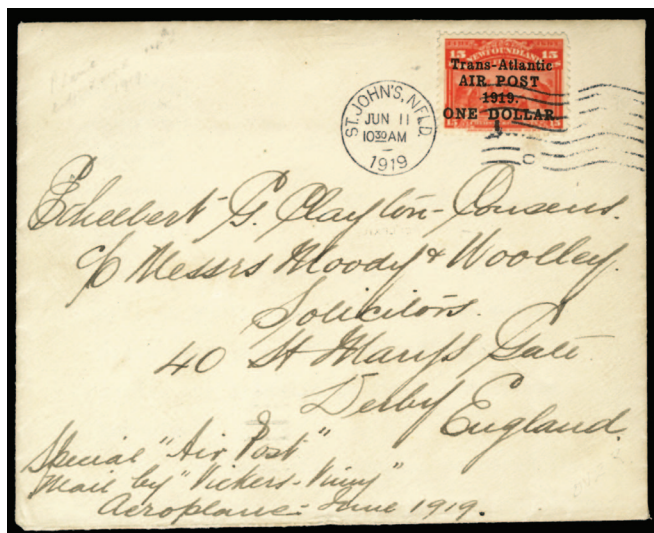 15 NEWFOUNDLAND 15
Trans-Atlantic
AIR POST
1919.
ONE DOLLAR.
ST. JOHN'S, NFLD.
JUN 11
10 30 AM
1919
Ethelbert G. Clayton-Cousens.
c/o Messrs Moody & Woolley.
Solicitors.
40 St Mary's Gate
Derby
England.
Special "Air Post"
Mail by "Vickers-Vimy"
Aeroplane - June 1919.